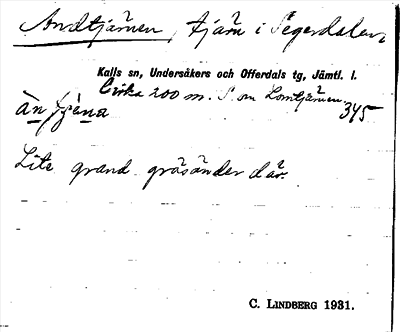 Andtjärnen, tjärn i Segerdalen
Kalls sn, Undersåkers och Offerdals tg, Jämtl. l.
Cirka 200 m. S. om Lomtjärnen 345
Lite grand gräsänder där.
C. LINDBERG 1931.